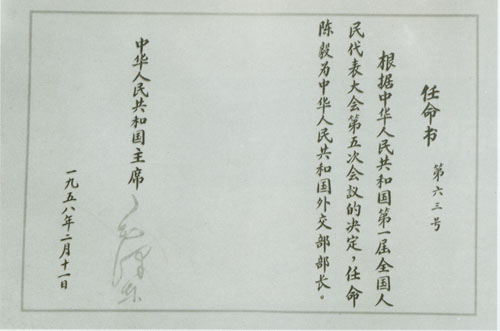 任命书
第六三号
根据中华人民共和国第一届全国人
民代表大会第五次会议的决定，任命
陈毅为中华人民共和国外交部部长。
中华人民共和国主席 毛泽东
一九五八年二月十一日